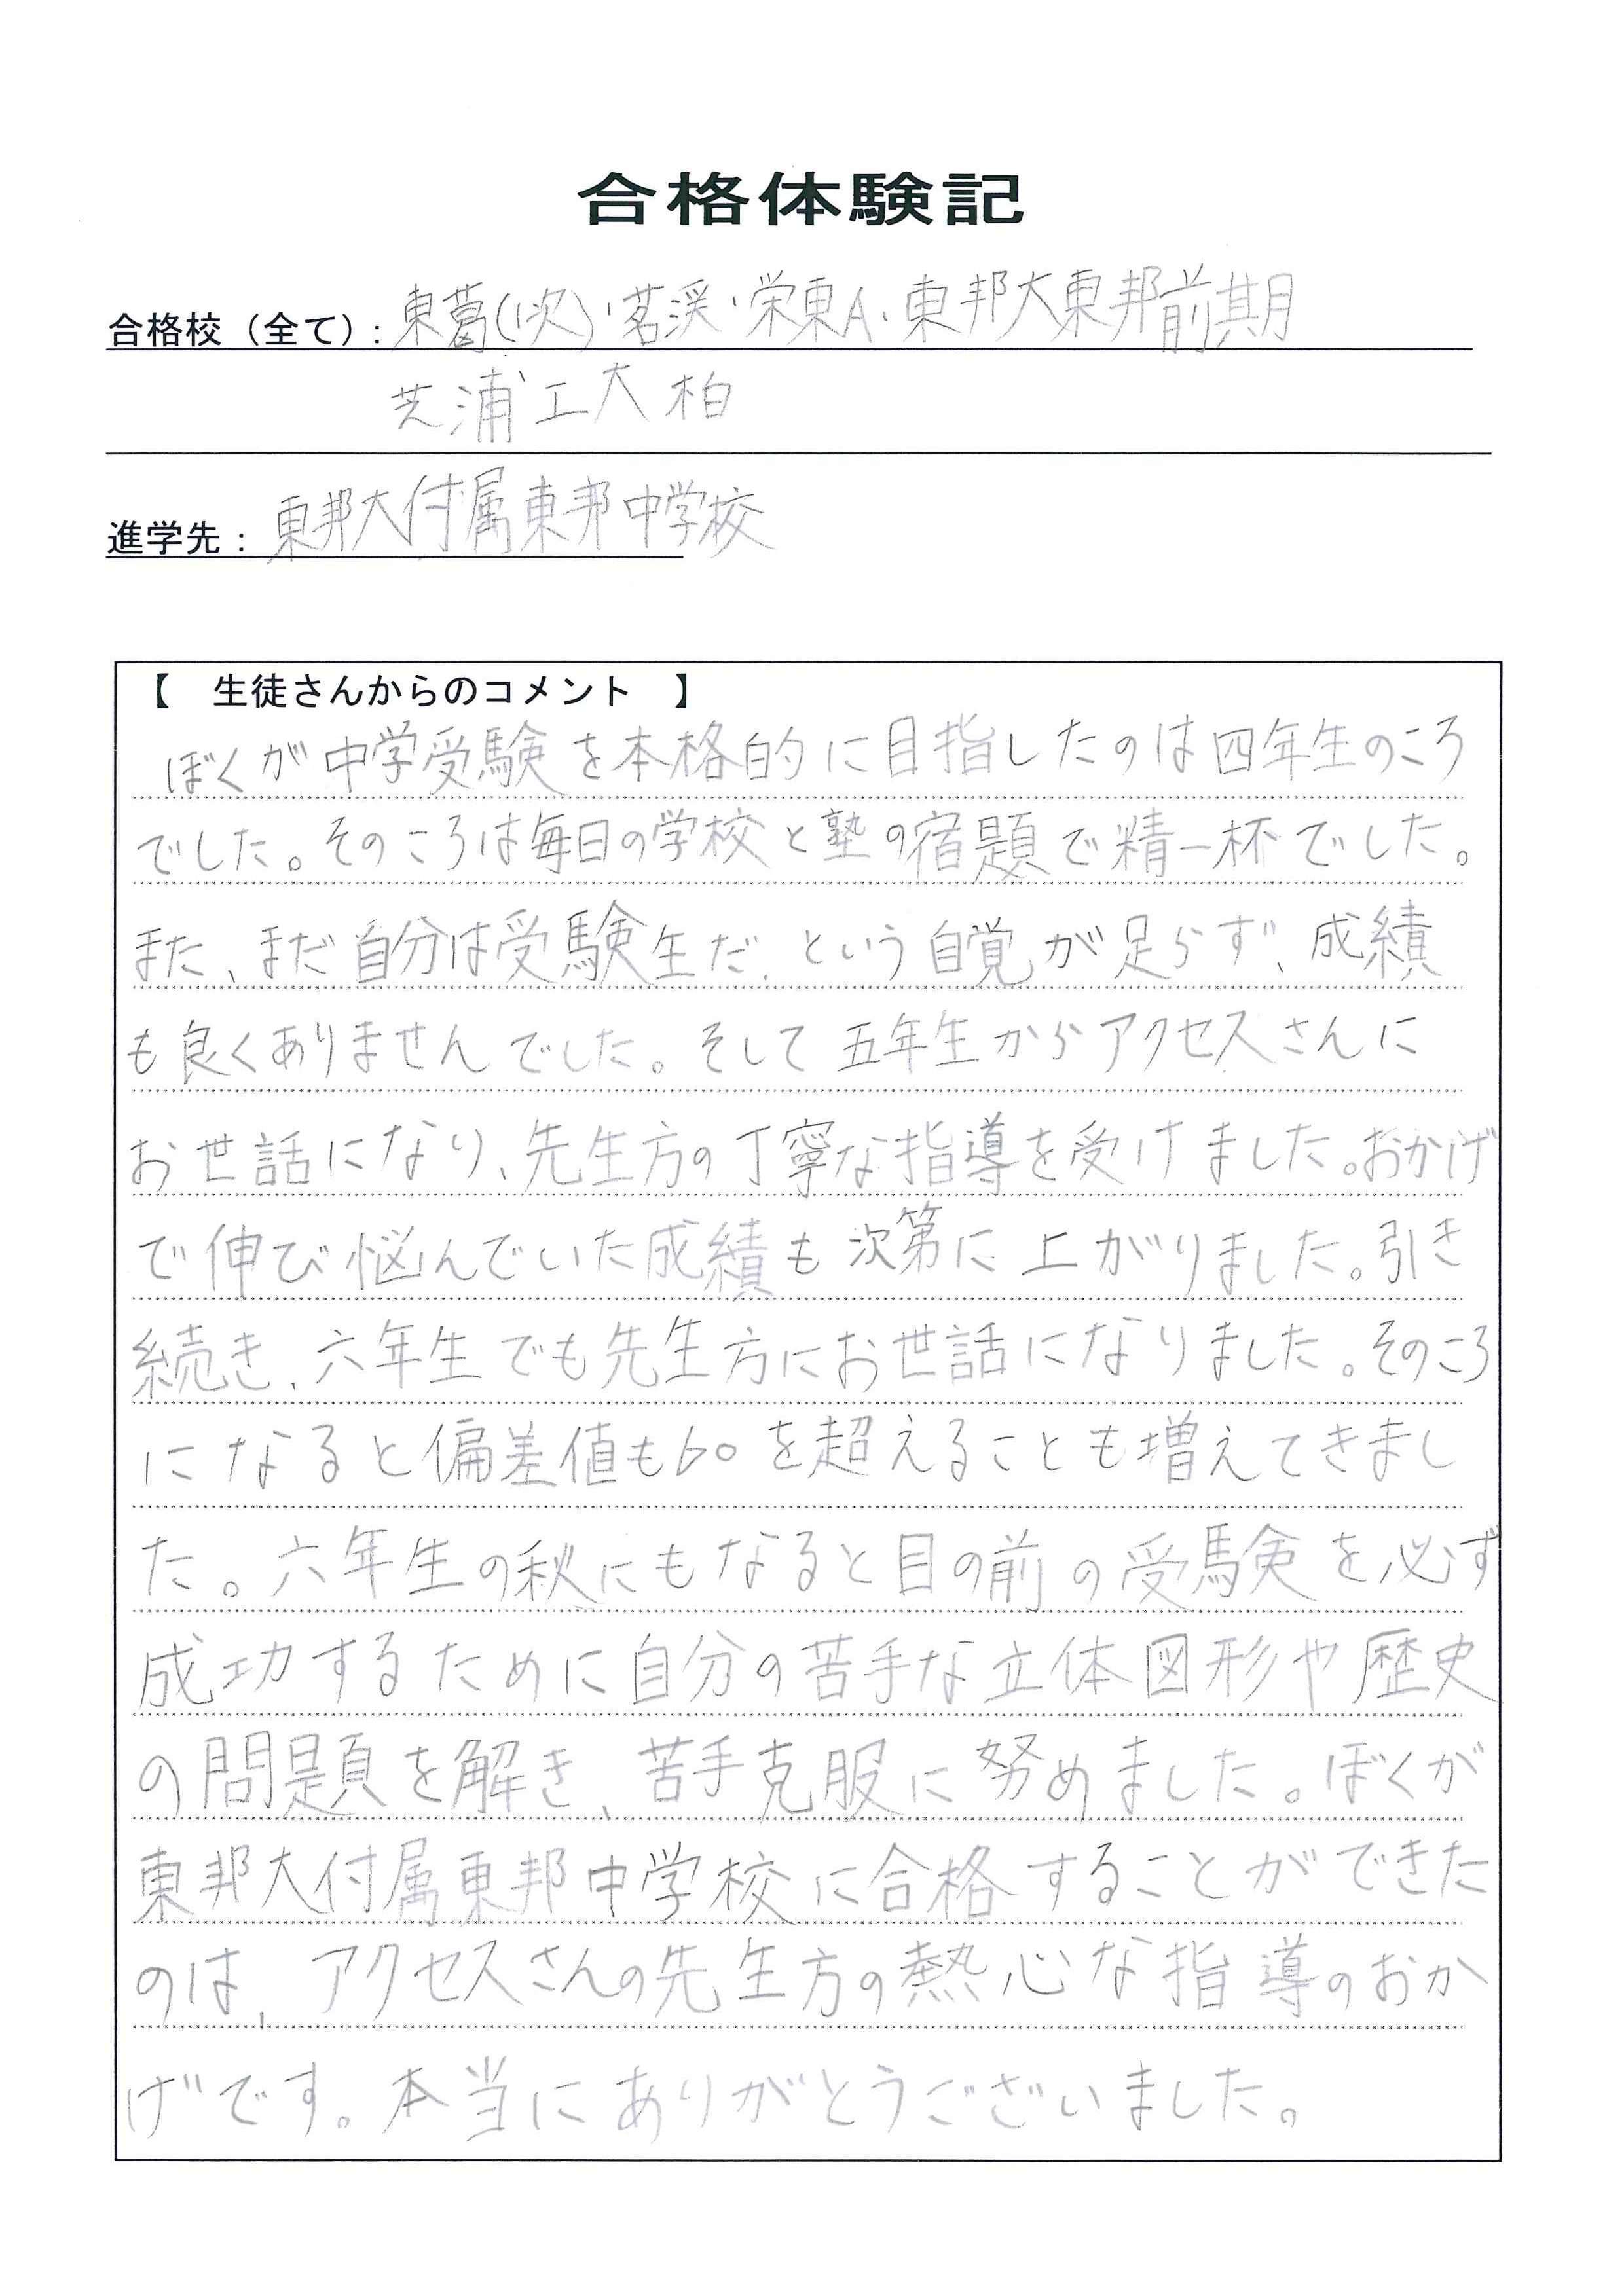 合格体験記
合格校（全て）：東葛(1次)・茗渓・栄東A・東邦大東邦前期
芝浦工大柏
進学先：東邦大付属東邦中学校
【　生徒さんからのコメント　】
ぼくが中学受験を本格的に目指したのは四年生のころ
でした。そのころは毎日の学校と塾の宿題で精一杯でした。
また、まだ自分は受験生だ、という自覚が足らず、成績
も良くありませんでした。そして五年生からアクセスさんに
お世話になり、先生方の丁寧な指導を受けました。おかげ
で伸び悩んでいた成績も次第に上がりました。引き
続き、六年生でも先生方にお世話になりました。そのころ
になると偏差値も60を超えることも増えてきまし
た。六年生の秋にもなると目の前の受験を必ず
成功するために自分の苦手な立体図形や歴史
の問題を解き、苦手克服に努めました。ぼくが
東邦大付属東邦中学校に合格することができた
のは、アクセスさんの先生方の熱心な指導のおか
げです。本当にありがとうございました。